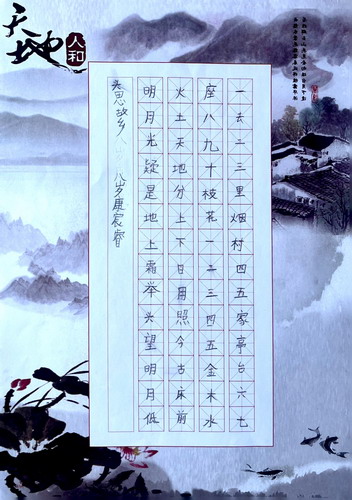 天地
人和
一去二三里烟村四五家亭台六七
座八九十枝花一二三四五金木水
火土天地分上下日月照今古床前
明月光疑是地上霜举头望明月低
头思故乡 八岁康宸睿